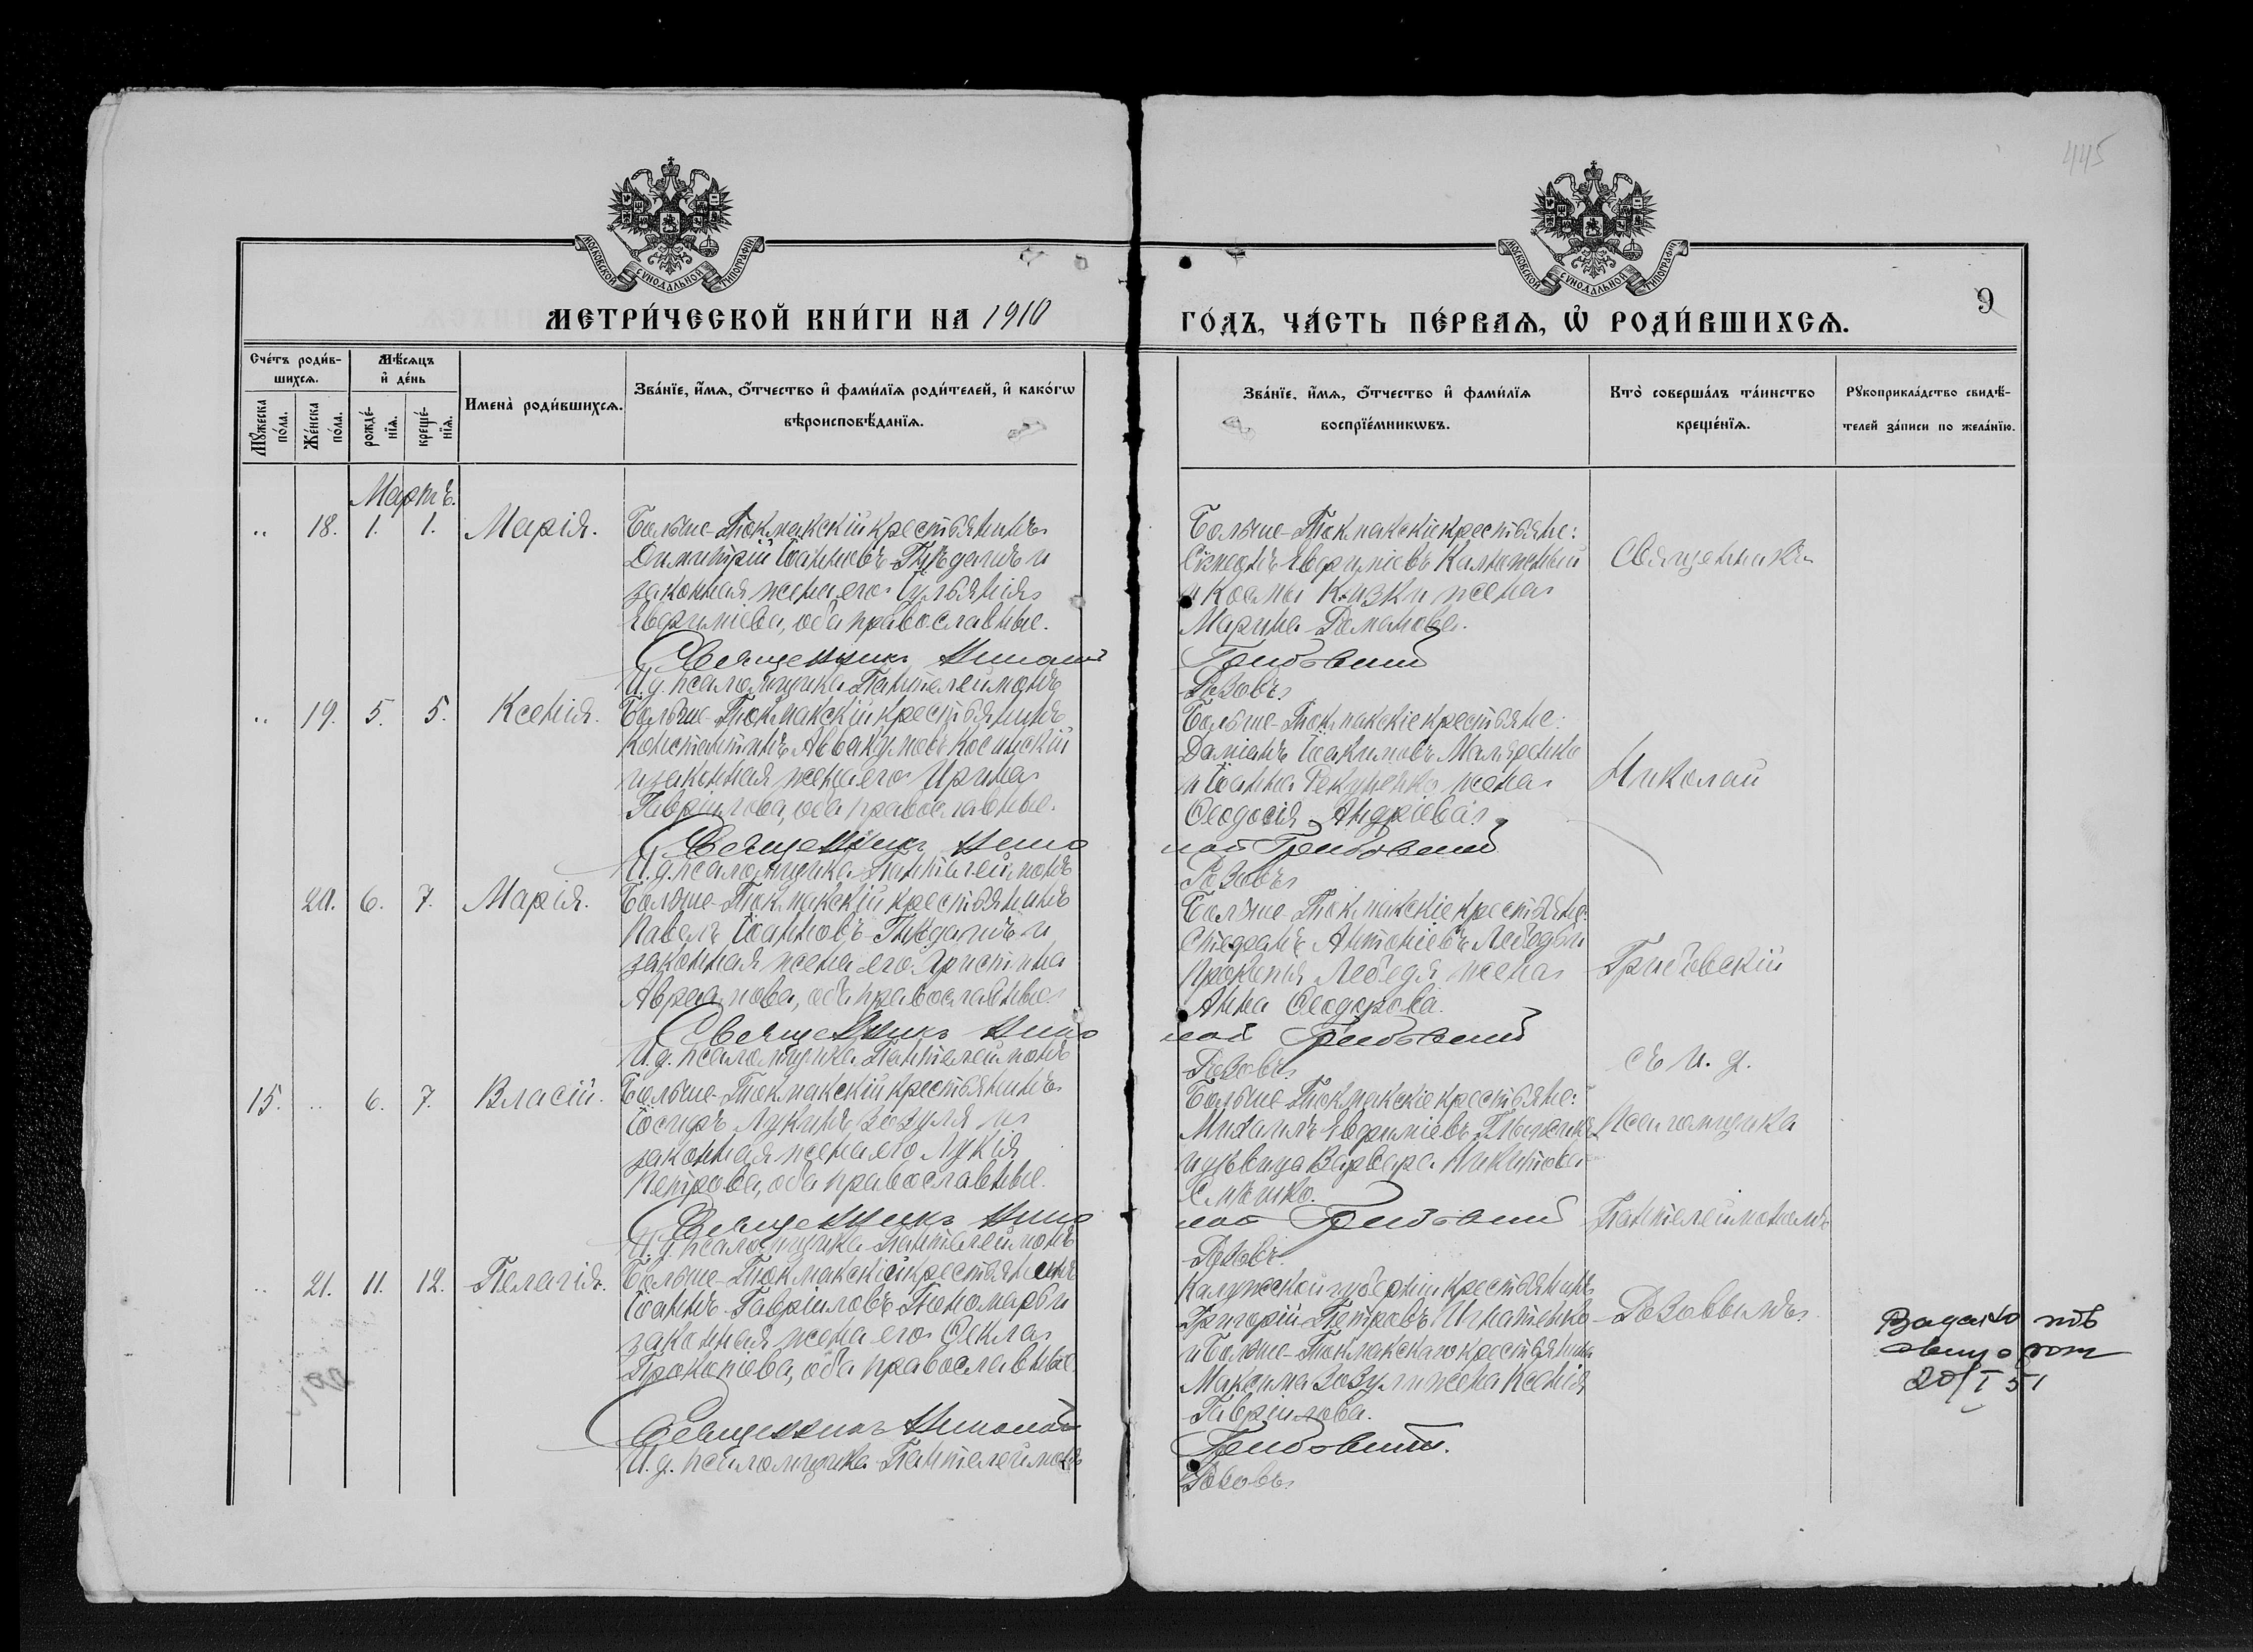 445
МОСКОВСКОЙ СУНОДАЛЬНОЙ ТИПОГРАФІИ
МОСКОВСКОЙ СУНОДАЛЬНОЙ ТИПОГРАФІИ
МЕТРИ́ЧЕСКОЙ КНИ́ГИ НА 1910
ГО́ДЪ, ЧА́СТЬ ПЕ́РВАѦ, Ѡ҆ РОДИ́ВШИХСѦ.
9
Сче́тъ роди́в-
шихсѧ.
Мѣ́сѧцъ
и҆ де́нь
Мꙋ́жеска
по́ла.
Же́нска
по́ла.
рожде́-
нїѧ.
креще́-
нїѧ.
Имена̀ роди́вшихсѧ.
Зва́нїе, и҆́мѧ, ѻ҆́тчество и҆ фами́лїѧ роди́телей, и҆ како́гѡ
вѣроисповѣ́данїѧ.
Зва́нїе, и҆́мѧ, ѻ҆́тчество и҆ фами́лїѧ
воспрїе́мникѡвъ.
Кто̀ соверша́лъ та́инство
креще́нїѧ.
Рꙋкоприкла́дство свидѣ́-
телей за́писи по жела́нїю.
Мартъ.
.. 18. 1. 1. Марія.
Больше-Токмакскій крестьянинъ
Димитрій Іоанновъ Гнѣдашъ и
законная жена его Ульянія
Евфиміева, оба православные.
Священникъ Николай
И. д. псаломщика Пантелеимонъ
Больше-Токмакскіе крестьяне:
Симеонъ Евфиміевъ Калюжный
и Космы жена
Марина Романова.
Грибовскій
Рѣзовъ
Священникъ
.. 19. 5. 5. Ксенія.
Больше-Токмакскій крестьянинъ
Константинъ Аввакумовъ Косинскій
и законная жена его Ирина
Гавріилова, оба православные.
Священникъ Нико
И. д. псаломщика Пантелеимонъ
Больше-Токмакскіе крестьяне:
Даміанъ Іоакимовъ Маляренко
и Іоанна жена
Ѳеодосія Андріева.
лай Грибовскій
Рѣзовъ
Николай
20. 6. 7. Марія.
Больше-Токмакскій крестьянинъ
Павелъ Іоанновъ Гнѣдашъ и
законная жена его Христина
Авраамова, оба православные
Священникъ Нико
И. д. псаломщика Пантелеимонъ
Больше-Токмакскіе крестьяне:
Стефанъ Антоніевъ Лебедь и
Прокопія Лебедя жена
Анна Ѳеодорова.
лай Грибовскій
Рѣзовъ
Грибовскій
съ и. д.
15. .. 6. 7. Власій.
Больше-Токмакскій крестьянинъ
Іосифъ Лукинъ Зозуля и
законная жена его Лукія
Петрова, оба православные.
Священникъ Нико
И. д. псаломщика Пантелеимонъ
Больше-Токмакскіе крестьяне:
Михаилъ Евфиміевъ
и дѣвица Варвара Никитова
лай Грибовскій
Рѣзовъ.
Псаломщика
Пантелеимономъ
.. 21. 11. 12. Пелагія.
Больше-Токмакскій крестьянинъ
Іоаннъ Гавріиловъ Пономарь и
законная жена его Ѳекла
Прокопова, оба православные
Священникъ Николай
И. д. псаломщика Пантелеимонъ
Калужской губерніи крестьянинъ
Григорій Петровъ Игнатенко
и Больше-Токмакскаго крестьянина
Максима Зозули жена Ксенія
Гавріилова.
Грибовскій.
Рѣзовъ
Рѣзовымъ
20/I 51